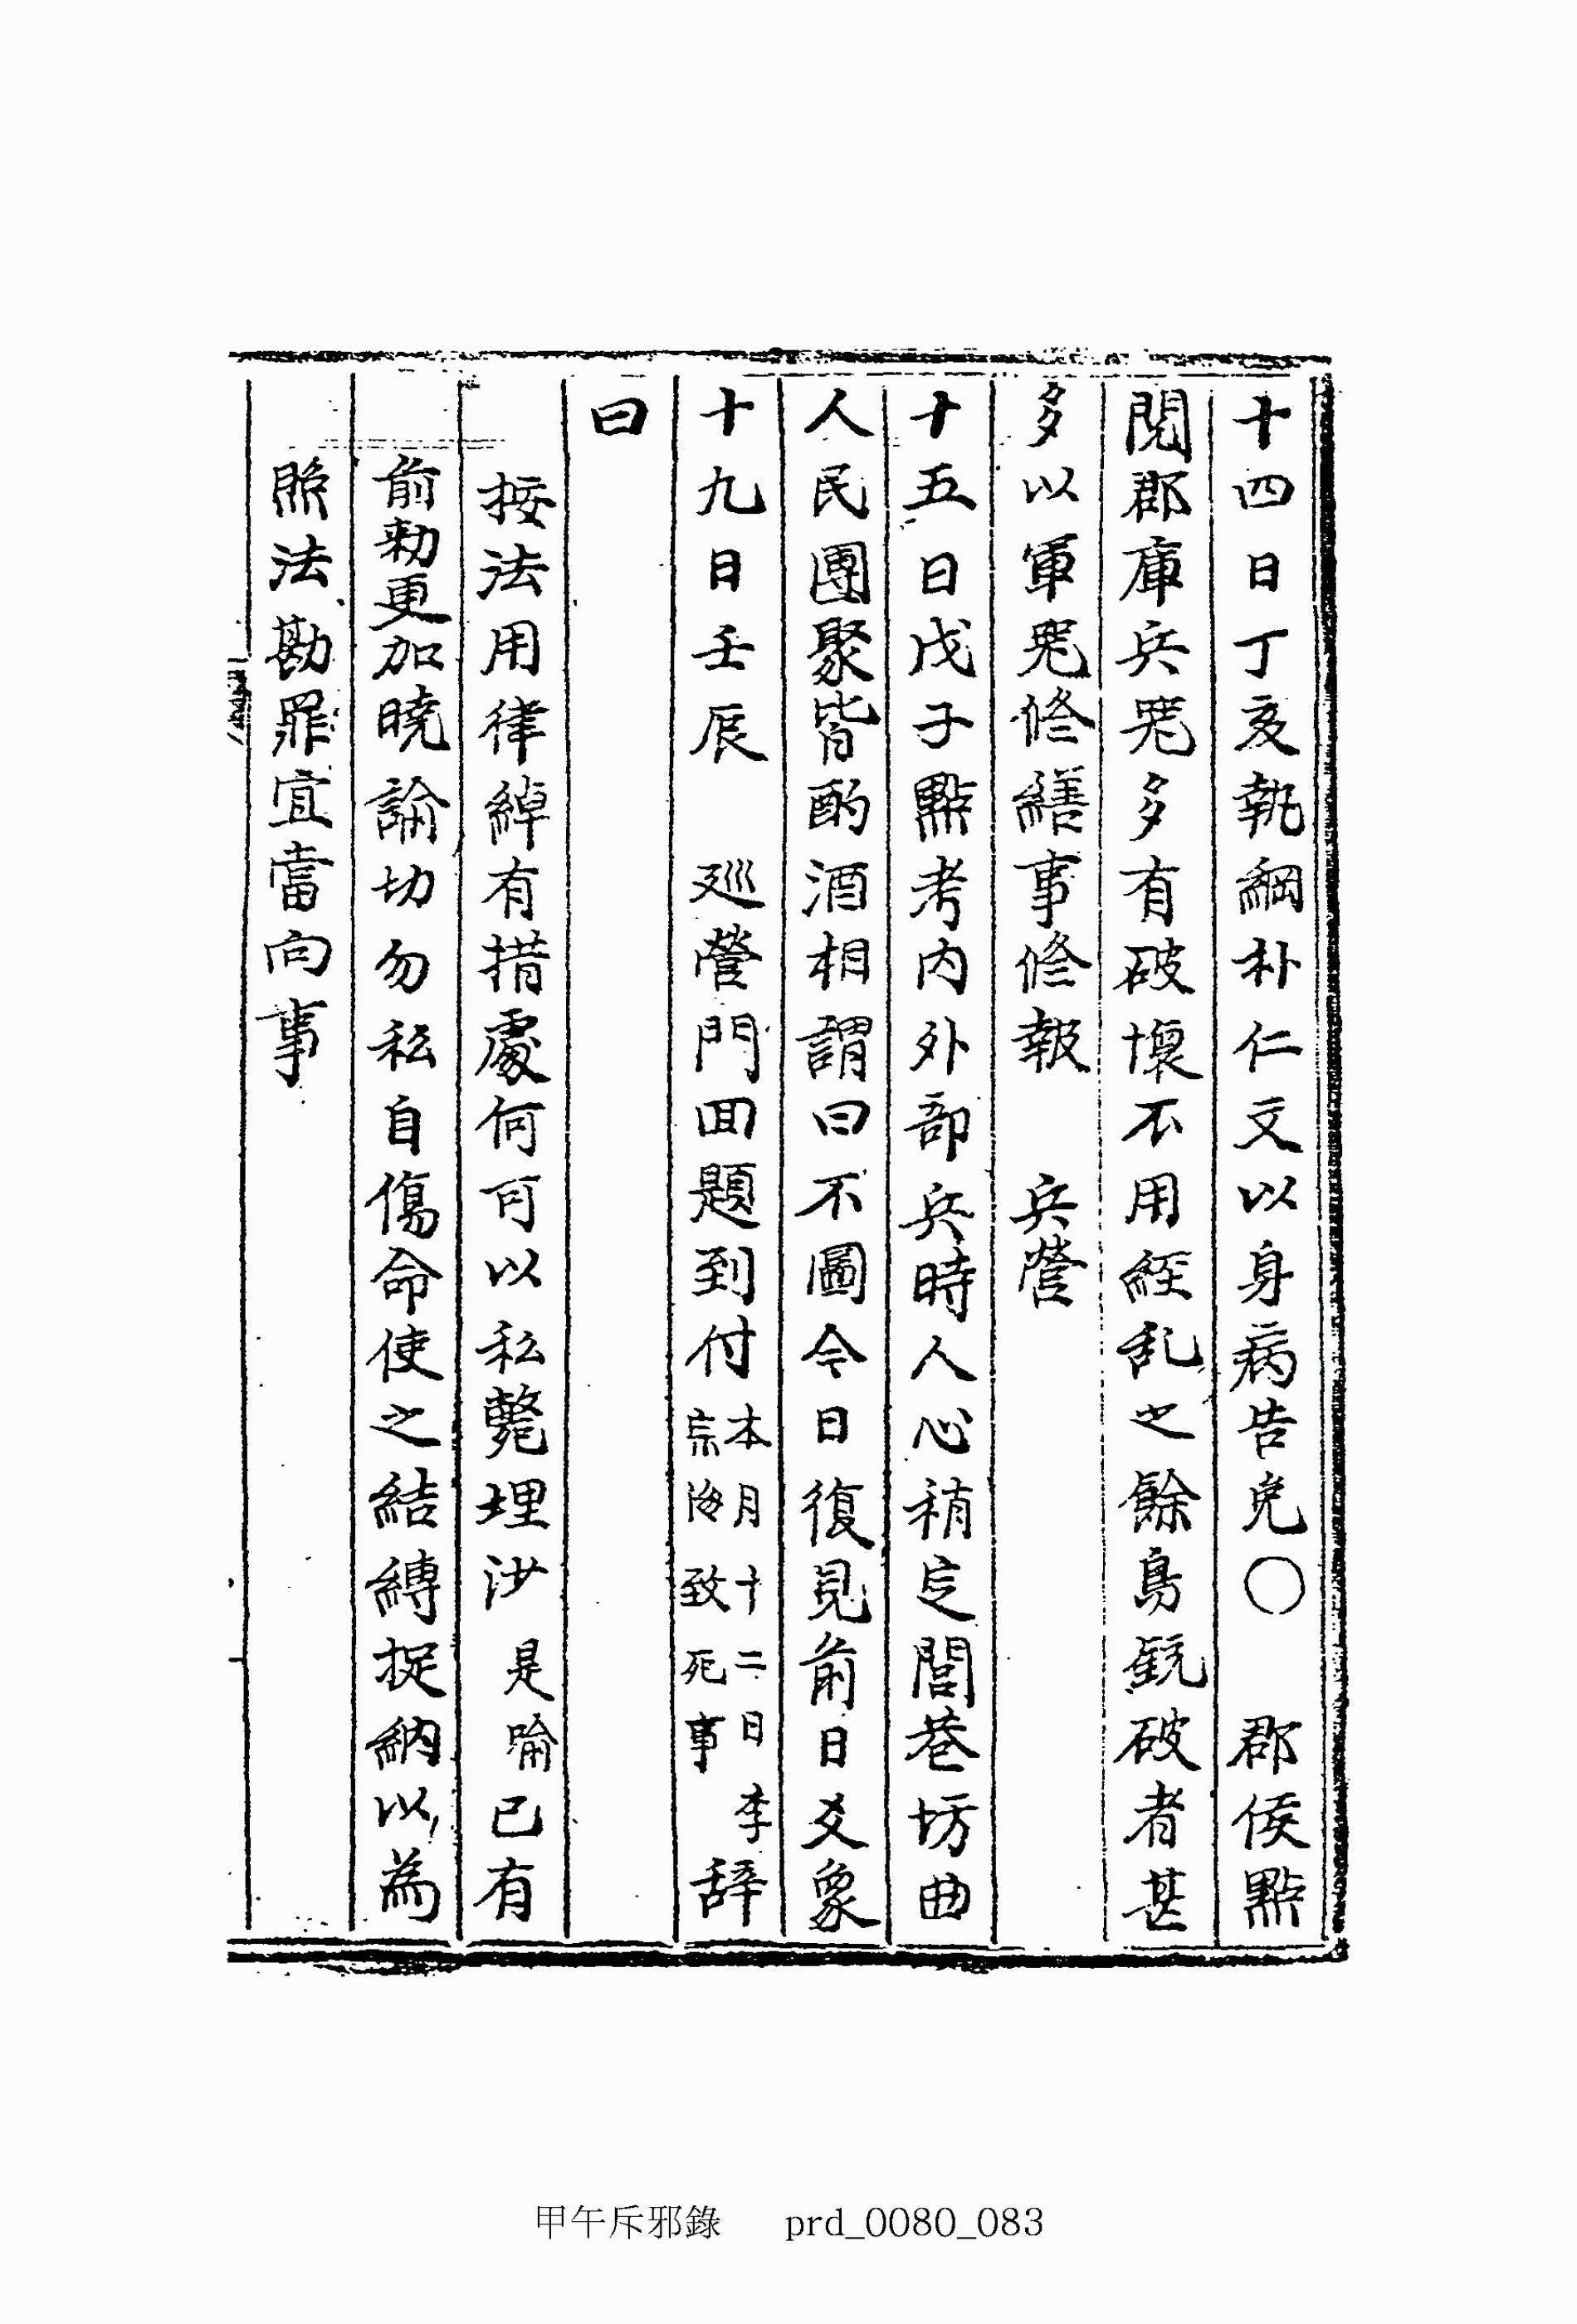 十四日丁亥執綱朴仁文以身病告免〇 郡侯點
閱郡庫兵器多有破壞不用經乱之餘鳥銃破者甚
多以軍器修繕事修報 兵營
十五日戊子點考內外部兵時人心稍定閭巷坊曲
人民團聚皆酌酒相謂曰不圖今日復見前日爻象
十九日壬辰 巡營門回題到付本月十二日李宗海致死事辞
曰
按法用律綽有措處何可以私斃埋 是喩已有
前勅更加曉諭切勿私自傷命使之結縛捉納以為
照法勘罪宜當向事
甲午斥邪錄 prd_0080_083